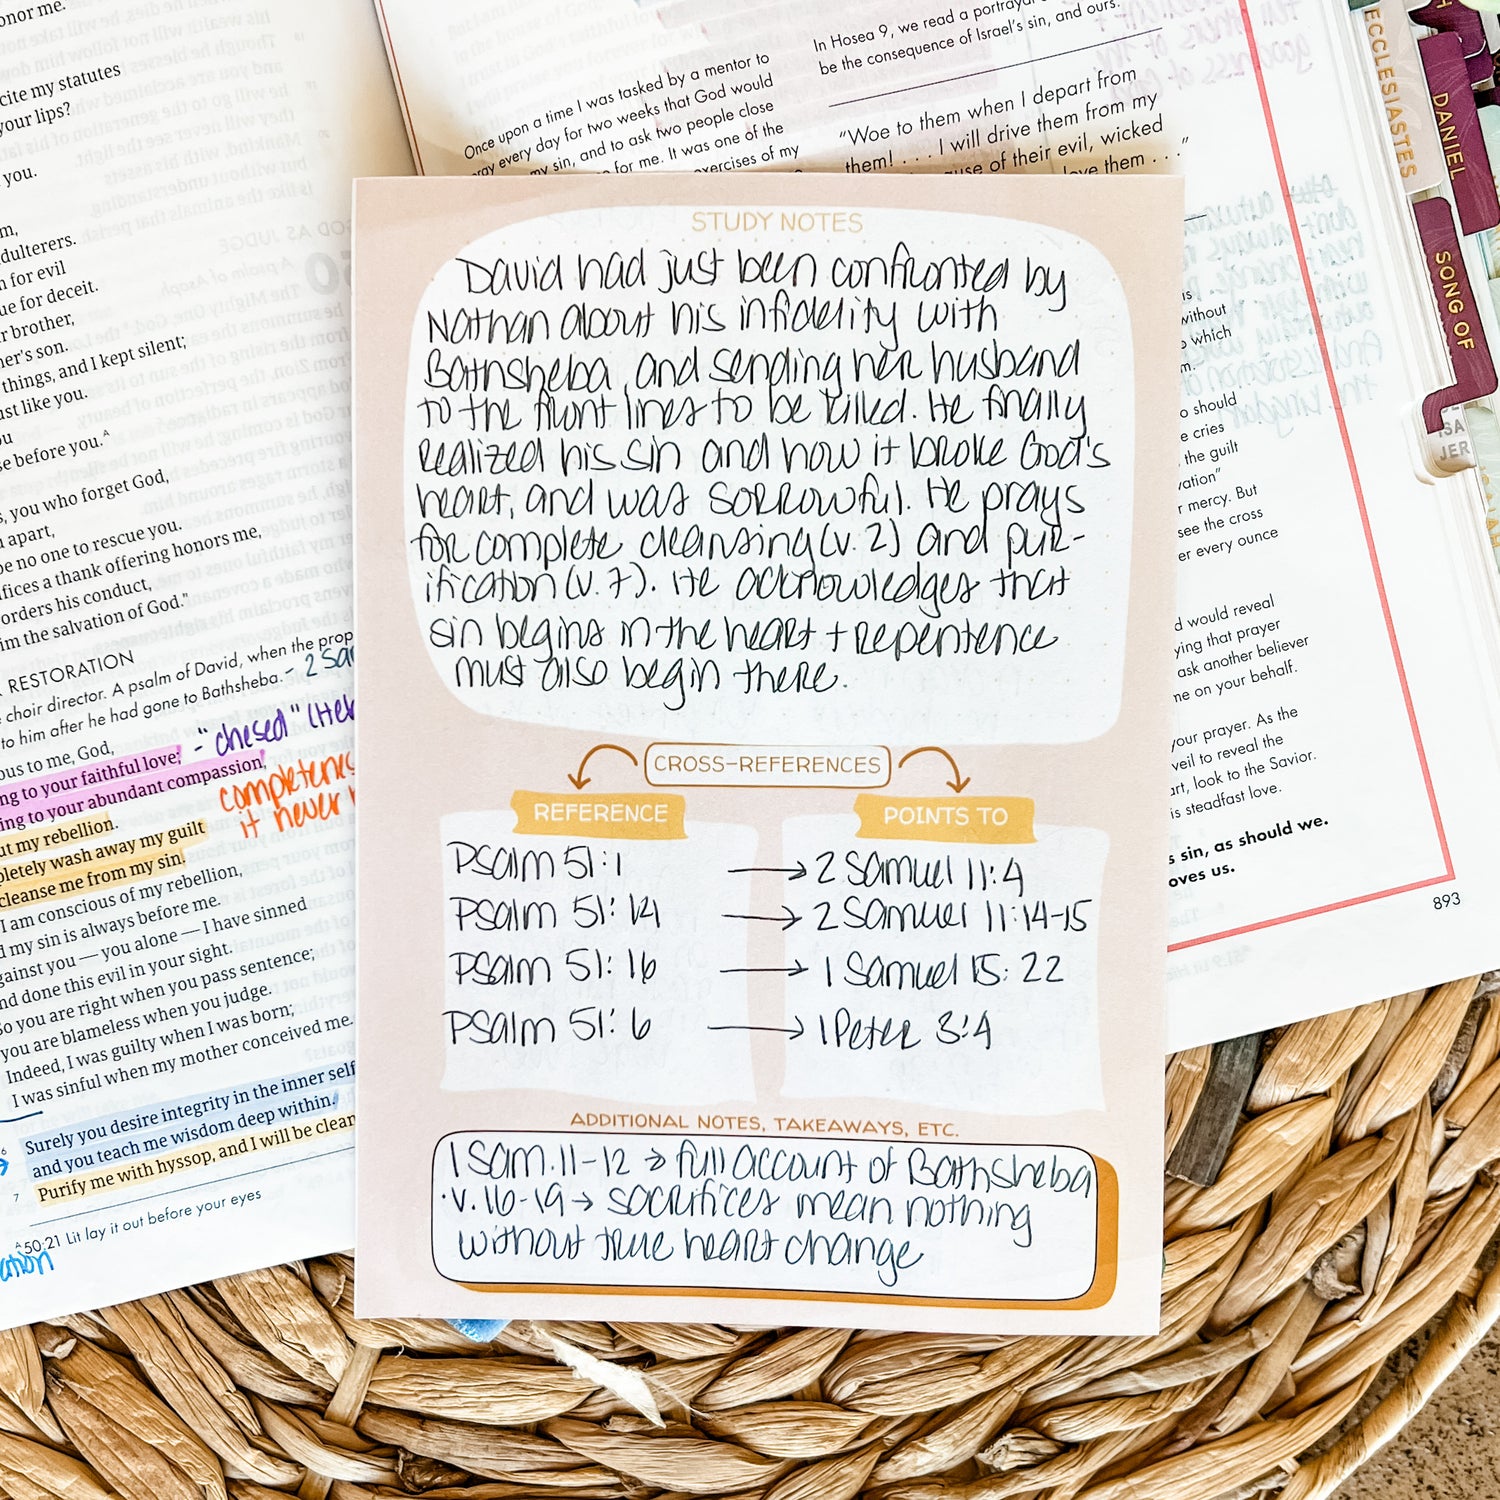 onor me.
cite my statutes
your lips?
you.
m,
dulterers.
n for evil
ue for deceit.
r brother,
her's son.
things, and I kept silent;
ust like you.
ou
se before you.ᴬ
s, you who forget God,
apart,
be no one to rescue you.
ifices a thank offering honors me,
orders his conduct,
him the salvation of God."
RESTORATION
choir director. A psalm of David, when the prop
to him after he had gone to Bathsheba. - 2 Sa
ous to me, God,
ng to your faithful love; - "chesed" (He
ing to your abundant compassion,
ut my rebellion.
completenes
it never
pletely wash away my guilt
cleanse me from my sin.
I am conscious of my rebellion,
d my sin is always before me.
gainst you — you alone — I have sinned
nd done this evil in your sight.
So you are right when you pass sentence;
you are blameless when you judge.
Indeed, I was guilty when I was born;
I was sinful when my mother conceived me.
6 Surely you desire integrity in the inner self
and you teach me wisdom deep within.
7 Purify me with hyssop, and I will be clean
ᴬ50:21 Lit lay it out before your eyes
ation
Once upon a time I was tasked by a mentor to
pray every day for two weeks that God would
my sin, and to ask two people close
for me. It was one of the
exercises of my
In Hosea 9, we read a portrayal
be the consequence of Israel's sin, and ours.
"Woe to them when I depart from
them! . . . I will drive them from my
use of their evil, wicked
love them . . ."
STUDY NOTES
David had just been confronted by
Nathan about his infidelity with
Bathsheba, and sending her husband
to the front lines to be killed. He finally
realized his sin and how it broke God's
heart, and was sorrowful. He prays
for complete cleansing (v. 2) and pur-
ification (v. 7). He acknowledges that
sin begins in the heart + repentence
must also begin there.
CROSS-REFERENCES
REFERENCE POINTS TO
Psalm 51:1 → 2 Samuel 11:4
Psalm 51:14 → 2 Samuel 11:14-15
Psalm 51:16 → 1 Samuel 15:22
Psalm 51:6 → 1 Peter 3:4
ADDITIONAL NOTES, TAKEAWAYS, ETC.
1 Sam. 11-12 → full account of Bathsheba
· v. 16-19 → sacrifices mean nothing
without true heart change
is
without
which
m.
o should
e cries
the guilt
vation"
r mercy. But
see the cross
er every ounce
d would reveal
ying that prayer
ask another believer
me on your behalf.
your prayer. As the
veil to reveal the
art, look to the Savior.
is steadfast love.
s sin, as should we.
oves us.
893
ECCLESIASTES
DANIEL
SONG OF
ISA
JER